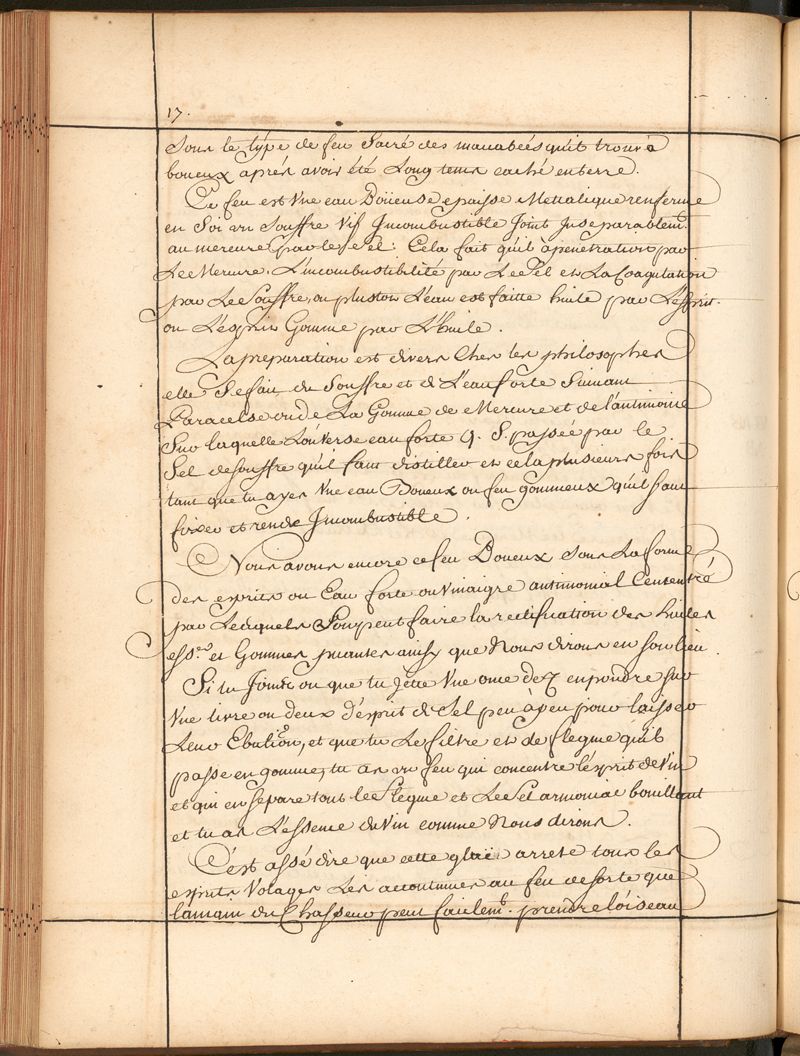 17.
sous le type de feu Sacré des macabées quil trouva
boueux aprés avoir été Long tems caché en terre.
Ce feu est Vne eau Boüeuse epaisse Mettalique renferme
en Soi un Souffre Vif Jncombustible Joint Jnseparablem.t
au mercure par le sel: Cela fait quil à penetration par
Le Mercure. L'incombustibilité par Le Sel et La Coagulation
par Le Souffre, ou plustot L'eau est faitte huile par L'esprit.
ou L'esprit Gomme par L'huile.
La preparation est divers Ches les philosophes
elle Se fait du Souffre et de L'eau forte Suivant
Paracelse ou de La Gomme de Mercure et de l'antimoine
Sur laquelle L'on verse eau forte q. S. passée par le
Sel de souffre quil faut distiller et cela plusieurs fois
tant que tu ayes Vne eau Boueux ou feu gommeux quil faut
fixer et rendre Jncombustible.
Nous avons encore ce feu Boueux sous La forme
des esprits ou Eau forte ou vinaigre antimonial Censentré
par Lesquels L'on peut faire la rectification des huiles
ess.les et Gommes puantes ainsy que Nous dirons en son lieu.
Si tu Joint ou que tu Jette Vne once de en poudre sur
Vne livre ou deux d'esprit de Sel peu à peu pour laisser
Leur Ebution, et que tu Le filtre et de flegme quil
passe en gomme, tu as un feu qui concentre l'esprit de Vin
et qui en separe tout le flegme et Le Sel armoniac bouillant
et tu as L'essence du Vin comme Nous dirons.
C'est assé dire que cette glace arrete tous les
esprits Volages Les accoutumes au feu de sorte que
la main du Chasseur peut facilem.t prendre l'oiseau